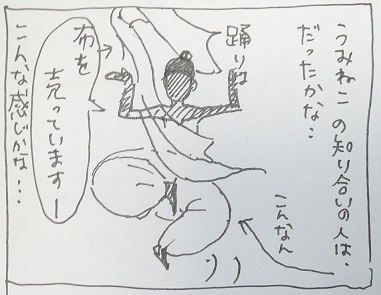 うみねこの知り合いの人は、
だったかな…
踊りは
布を
売っていますー
こんなん
こんな感じかな…